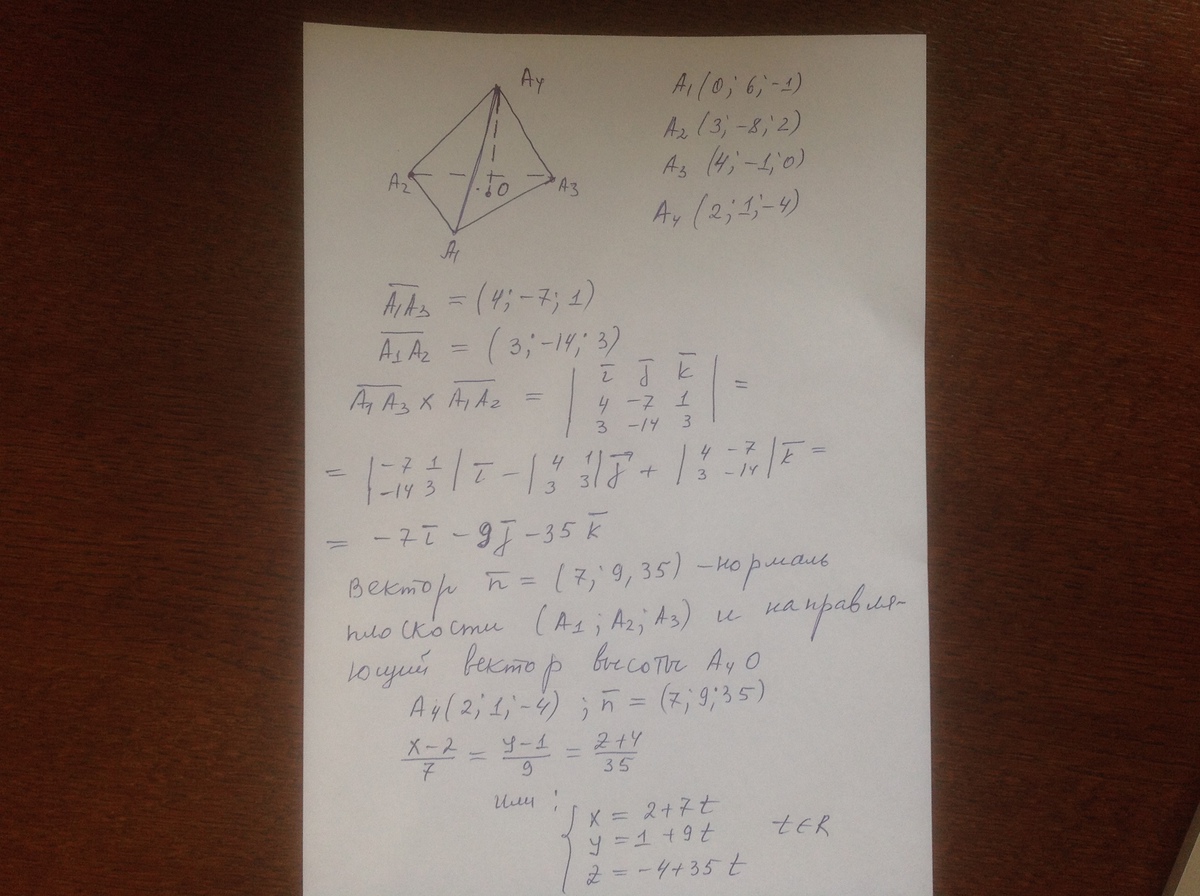 A4
A2
O
A3
A1
A1 (0; 6; -1)
A2 (3; -8; 2)
A3 (4; -1; 0)
A4 (2; 1; -4)
A̅1̅A̅3̅ = (4; -7; 1)
A̅1̅A̅2̅ = (3; -14; 3)
A̅1̅A̅3̅ × A̅1̅A̅2̅ = | i̅ j̅ k̅
4 -7 1
3 -14 3 | =
= | -7 1
-14 3 | i̅ - | 4 1
3 3 | j⃗ + | 4 -7
3 -14 | k̅ =
= -7 i̅ - 9 j̅ - 35 k̅
Вектор n̅ = (7; 9, 35) - нормаль
плоскости (A1; A2; A3) и направля-
ющий вектор высоты A4O
A4 (2; 1; -4) ; n̅ = (7; 9; 35)
x-2/7 = y-1/9 = z+4/35
или :
{ x = 2 + 7t
y = 1 + 9t t ∈ R
z = -4 + 35t